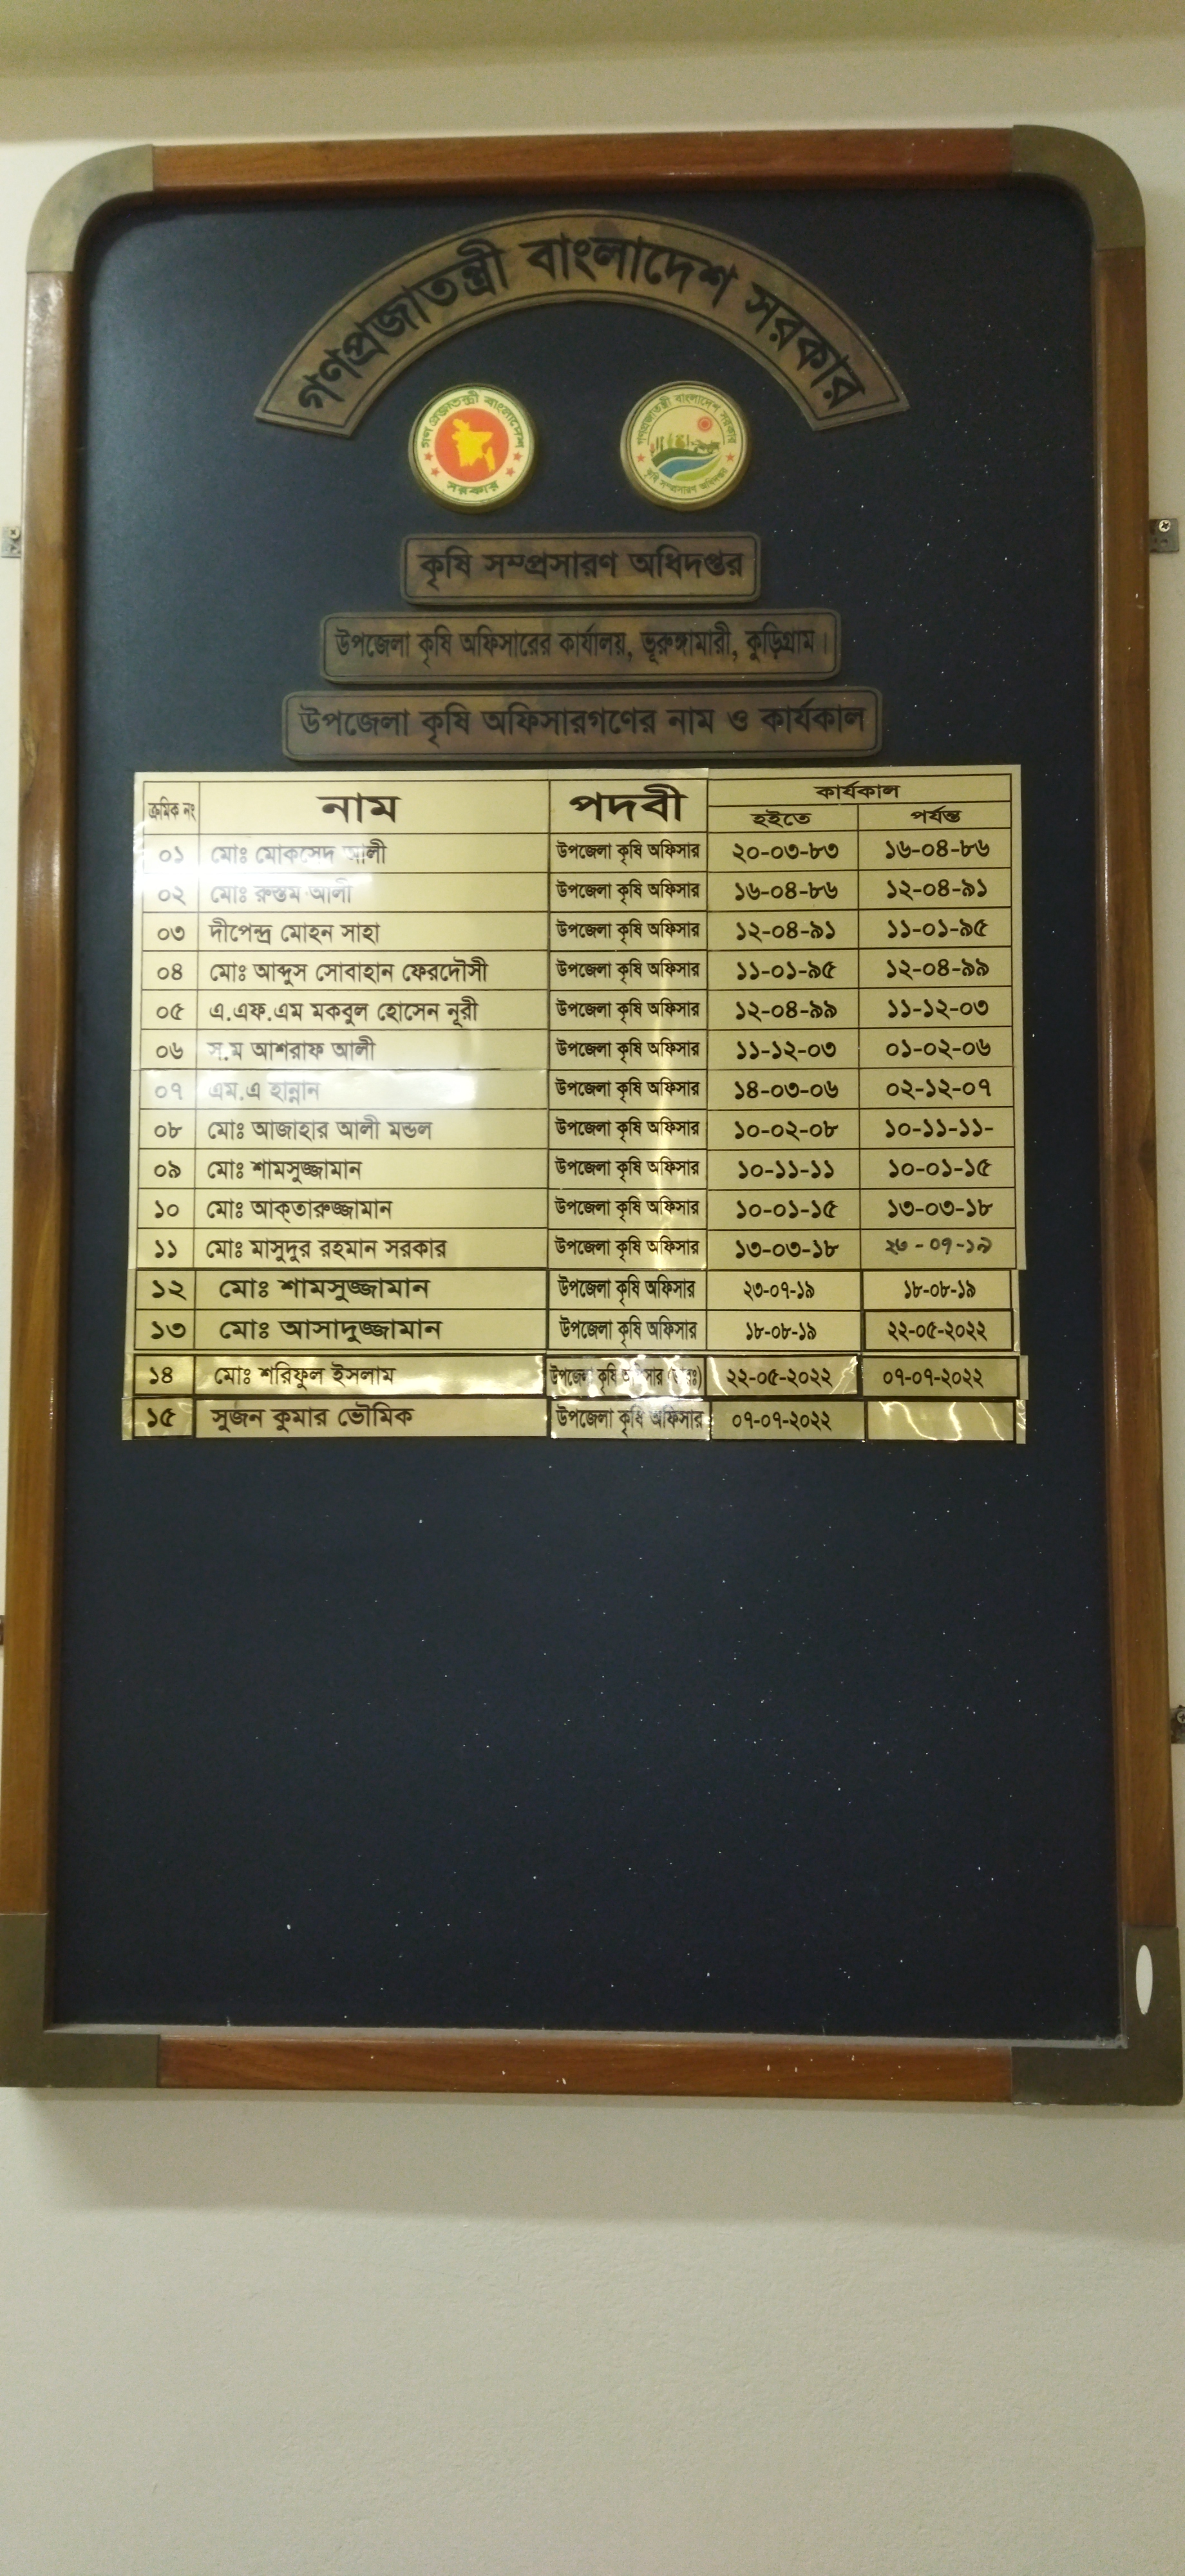 গণপ্রজাতন্ত্রী বাংলাদেশ সরকার
গণপ্রজাতন্ত্রী বাংলাদেশ
সরকার
গণপ্রজাতন্ত্রী বাংলাদেশ সরকার
কৃষি সম্প্রসারণ অধিদপ্তর
কৃষি সম্প্রসারণ অধিদপ্তর
উপজেলা কৃষি অফিসারের কার্যালয়, ভূরুঙ্গামারী, কুড়িগ্রাম।
উপজেলা কৃষি অফিসারগণের নাম ও কার্যকাল
ক্রমিক নং নাম পদবী কার্যকাল
হইতে পর্যন্ত
০১ মোঃ মোকসেদ আলী উপজেলা কৃষি অফিসার ২০-০৩-৮৩ ১৬-০৪-৮৬
০২ মোঃ রুস্তম আলী উপজেলা কৃষি অফিসার ১৬-০৪-৮৬ ১২-০৪-৯১
০৩ দীপেন্দ্র মোহন সাহা উপজেলা কৃষি অফিসার ১২-০৪-৯১ ১১-০১-৯৫
০৪ মোঃ আব্দুস সোবাহান ফেরদৌসী উপজেলা কৃষি অফিসার ১১-০১-৯৫ ১২-০৪-৯৯
০৫ এ.এফ.এম মকবুল হোসেন নূরী উপজেলা কৃষি অফিসার ১২-০৪-৯৯ ১১-১২-০৩
০৬ স.ম আশরাফ আলী উপজেলা কৃষি অফিসার ১১-১২-০৩ ০১-০২-০৬
০৭ এম.এ হান্নান উপজেলা কৃষি অফিসার ১৪-০৩-০৬ ০২-১২-০৭
০৮ মোঃ আজাহার আলী মন্ডল উপজেলা কৃষি অফিসার ১০-০২-০৮ ১০-১১-১১-
০৯ মোঃ শামসুজ্জামান উপজেলা কৃষি অফিসার ১০-১১-১১ ১০-০১-১৫
১০ মোঃ আক্তারুজ্জামান উপজেলা কৃষি অফিসার ১০-০১-১৫ ১৩-০৩-১৮
১১ মোঃ মাসুদুর রহমান সরকার উপজেলা কৃষি অফিসার ১৩-০৩-১৮ ২৩-০৭-১৯
১২ মোঃ শামসুজ্জামান উপজেলা কৃষি অফিসার ২৩-০৭-১৯ ১৮-০৮-১৯
১৩ মোঃ আসাদুজ্জামান উপজেলা কৃষি অফিসার ১৮-০৮-১৯ ২২-০৫-২০২২
১৪ মোঃ শরিফুল ইসলাম উপজেলা কৃষি অফিসার ২২-০৫-২০২২ ০৭-০৭-২০২২
১৫ সুজন কুমার ভৌমিক উপজেলা কৃষি অফিসার ০৭-০৭-২০২২